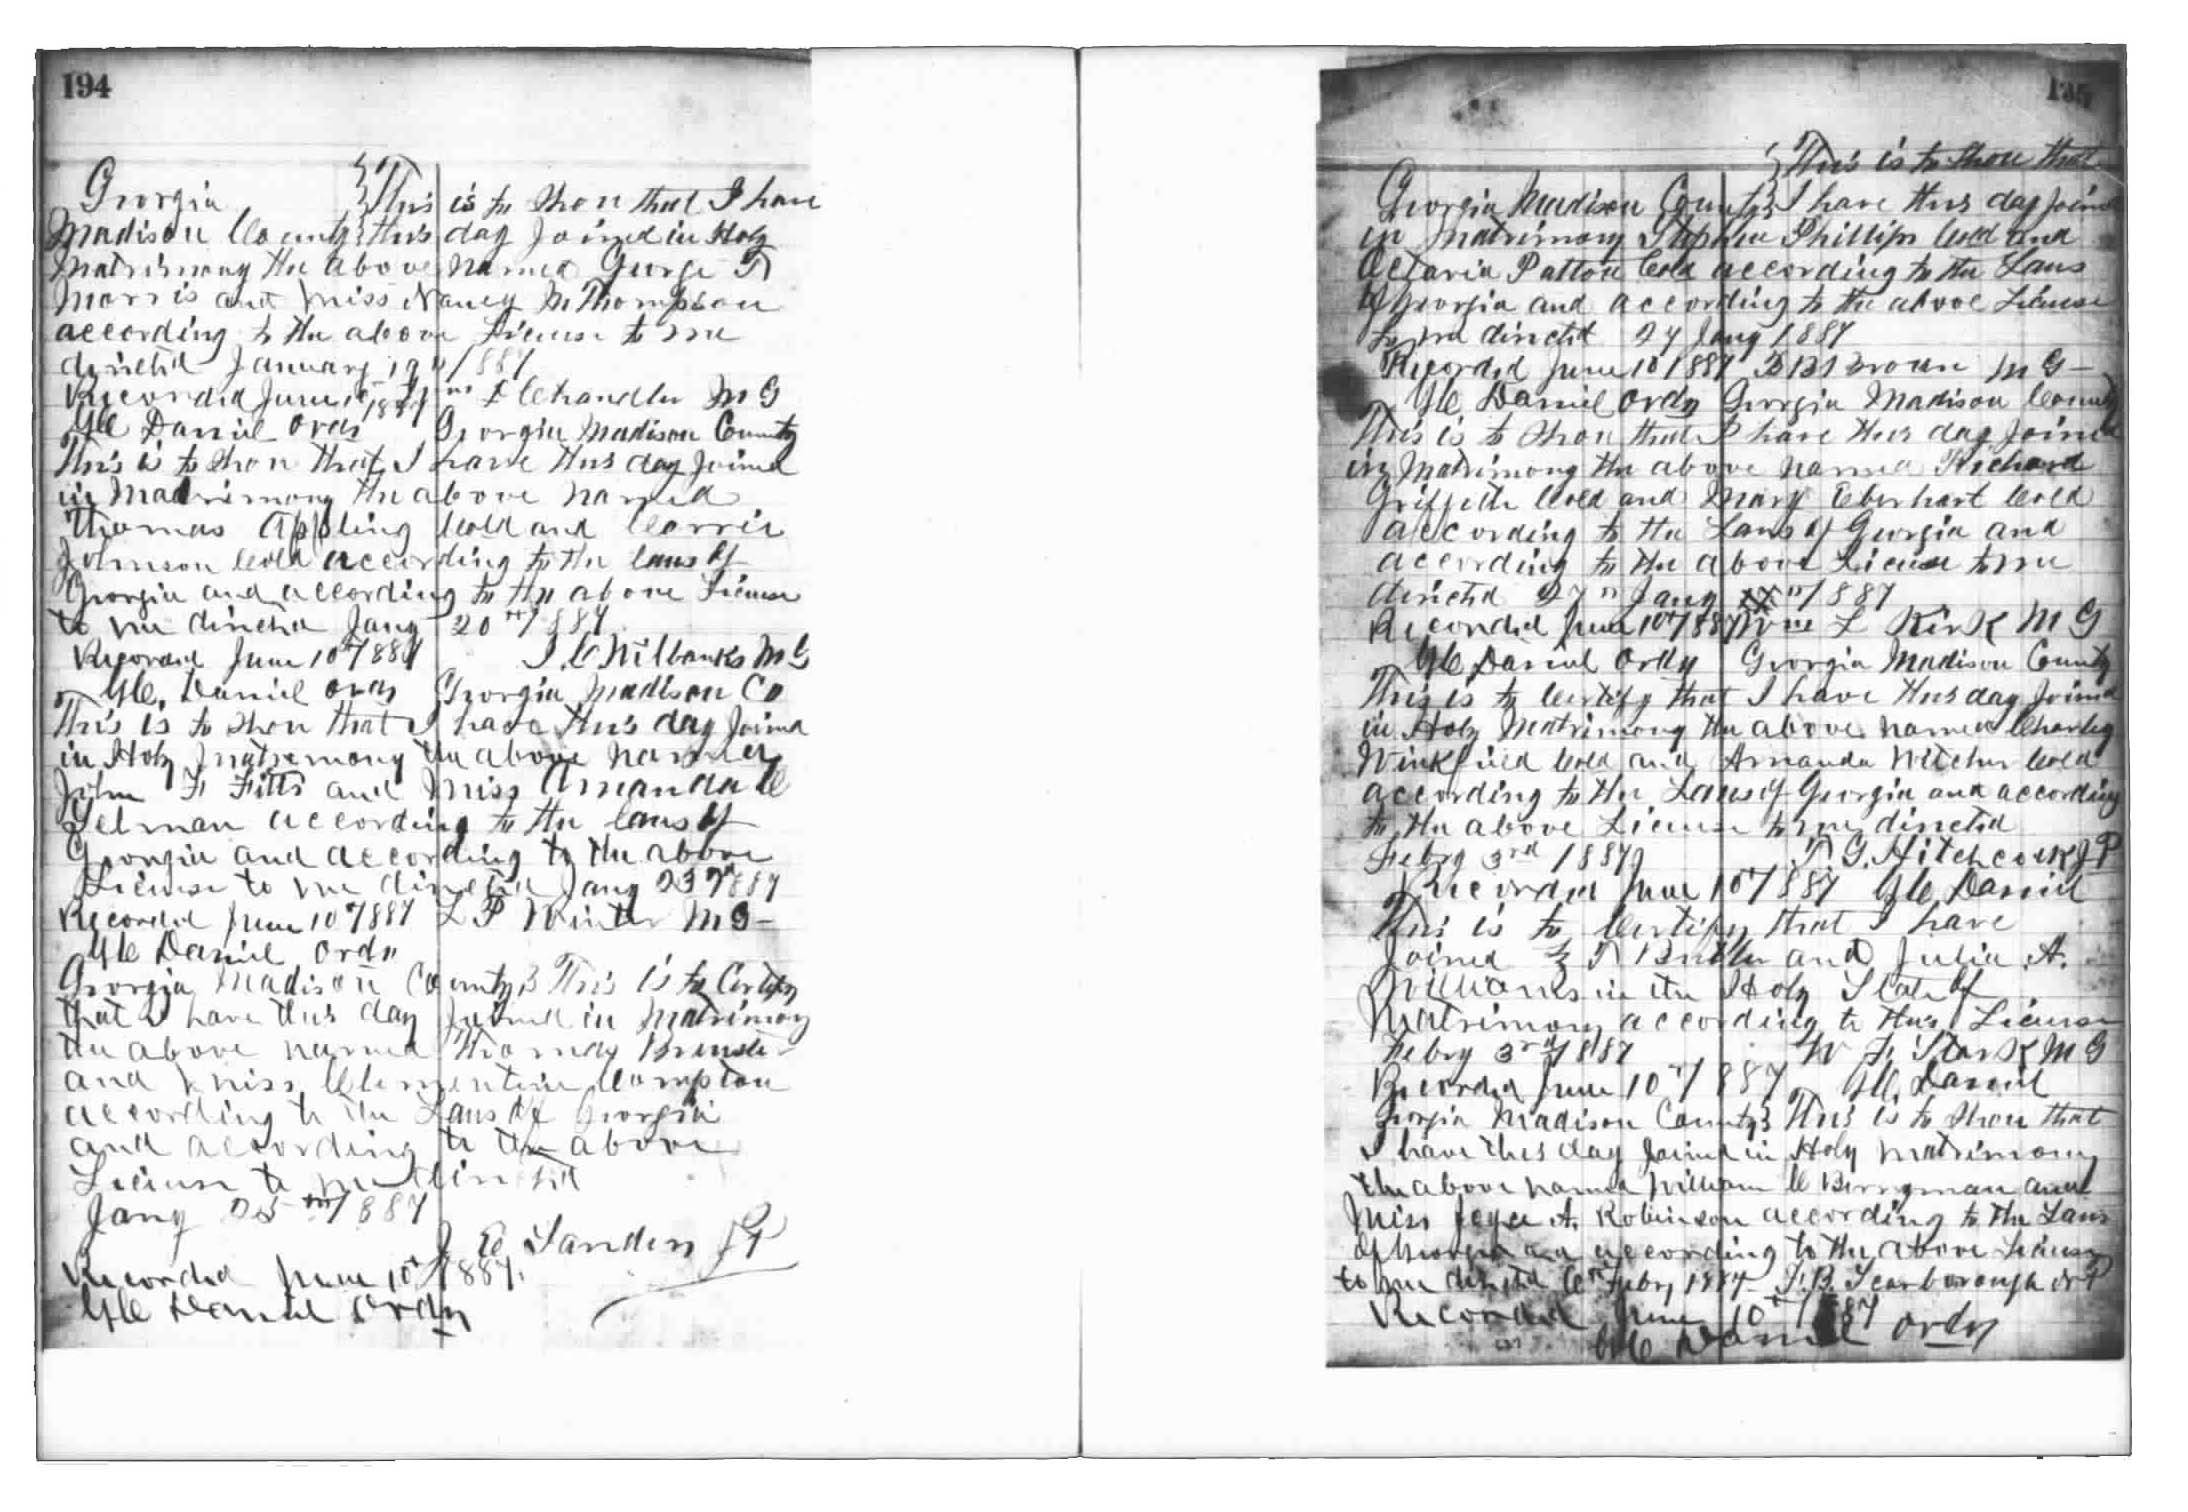 194
Georgia } This is to Show that I have
Madison County } this day Joined in Holy
Matrimony the above named George T
Morris and Miss Nancy M Thompson
according to the above License to me
directed January 19th 1887
Recorded June 10th 1887 Chandler M G
Daniel Ordy Georgia Madison County
This is to Show that I have this day Joined
in Matrimony the above named
Thomas Appling Cold and Carrie
Johnson Cold according to the laws of
Georgia and according to the above License
to me directed Jany 20th 1887
Recorded June 10th 1887 Wilbanks M G
Daniel Ordy Georgia Madison Co
This is to Show that I have this day Joined
in Holy Matrimony the above named
John F Fitts and Miss Amanda C
according to the laws of
Georgia and according to the above
License to me directed Jany 23rd 1887
Recorded June 10th 1887 L P Winter M G
Daniel Ordy
Georgia Madison County } This is to Certify
that I have this day Joined in Matrimony
the above named Thomas
and Miss Clementine Compton
according to the Laws of Georgia
and according to the above
License to me directed
Jany 25th 1887
J E Sanders JP
Recorded June 10th 1887.
Daniel Ordy
195
} This is to Show that
Georgia Madison County } I have this day Joined
in Matrimony Stephen Phillips Cold and
Octavia Patton Cold according to the Laws
of Georgia and according to the above License
to me directed 27 Jany 1887
Recorded June 10 1887 Brown M G
Daniel Ordy Georgia Madison County
This is to Show that I have this day Joined
in Matrimony the above named Richard
Griffeth Cold and Mary Eberhart Cold
according to the Laws of Georgia and
according to the above License to me
directed 27th Jany 1887
Recorded June 10th 1887 Wm L Kirk M G
Daniel Ordy Georgia Madison County
This is to Certify that I have this day Joined
in Holy Matrimony the above named Charley
Winkfield Cold and Amanda Witcher Cold
according to the Laws of Georgia and according
to the above License to me directed
Febry 3rd 1887 T. G. Hitchcock J P
Recorded June 10th 1887 Daniel
This is to Certify that I have
Joined T Butler and Julia A.
Williams in the Holy State of
Matrimony according to this License
Febry 3rd 1887 W F Stark M G
Recorded June 10th 1887 Daniel
Georgia Madison County } This is to Show that
I have this day Joined in Holy Matrimony
the above named William C Berryman and
Miss A. Robinson according to the Laws
of Georgia and according to the above License
to me directed 6th Febry 1887 F. B. Scarborough N P
Recorded June 10th 1887
Daniel Ordy